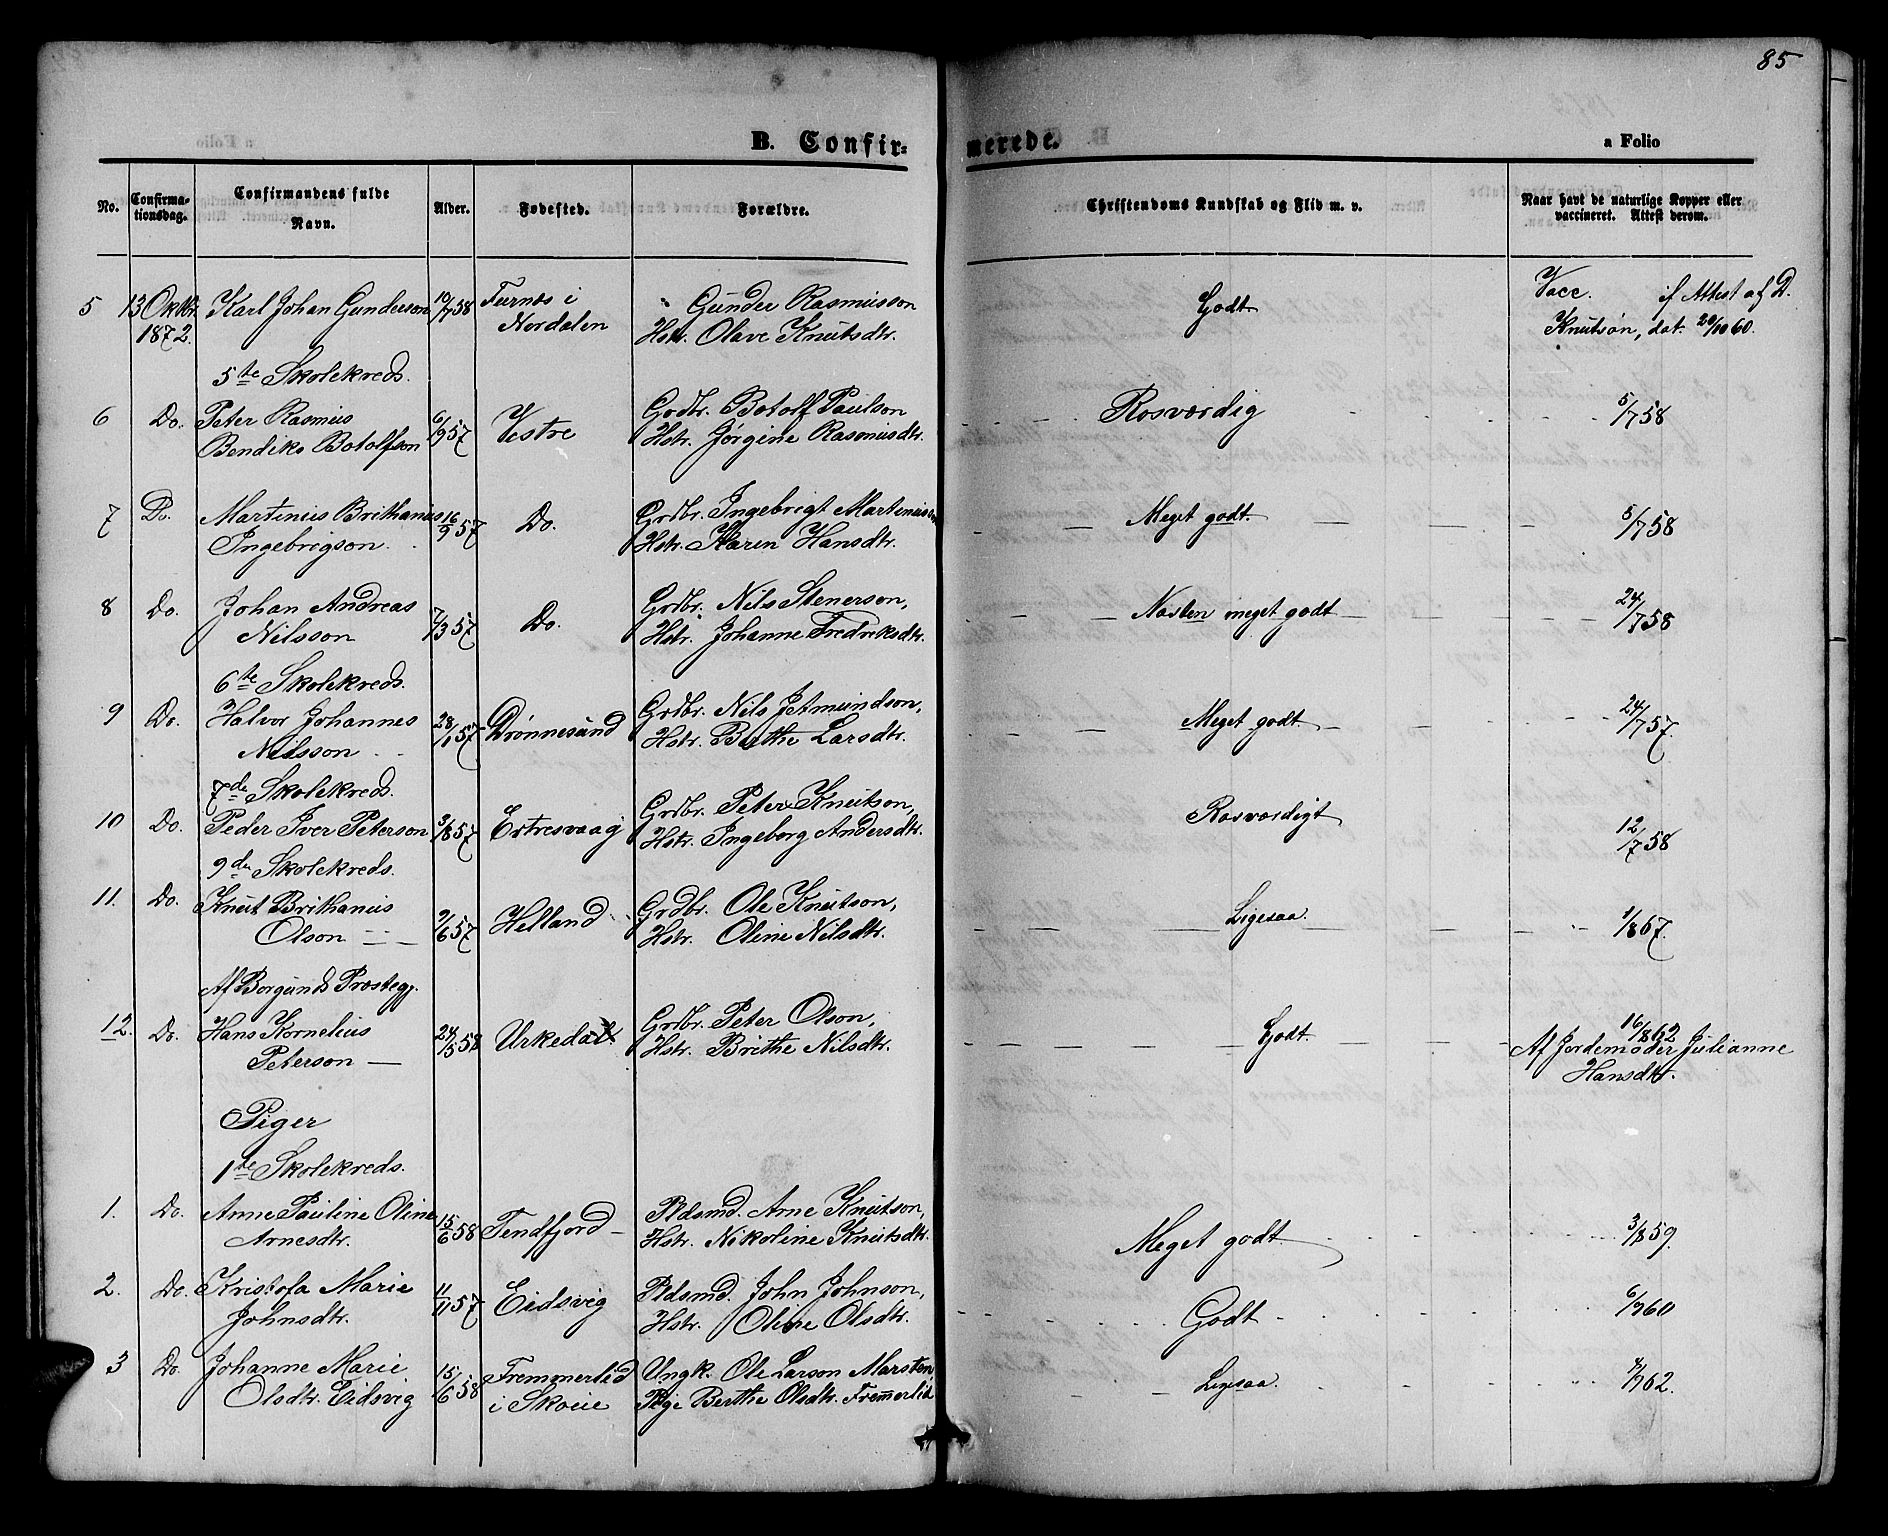 85
B. Confirmerede.
a Folio
No.
Confirmationsdag.
Confirmandens fulde Navn.
Alder.
Fødested.
Forældre.
Christendoms Kundskab og Flid m. v.
Naar havt de naturlige Kopper eller vaccineret. Attest derom.
5 13 Oktbr. Karl Johan Gunderson 10/7 58 Furnæs i Gunder Rasmusson Godt Vacc. if Attest af D.
1872. Nordalen Hstr. Olave Knutsdtr. Knutsøn, dat. 20/10 60.
5te Skolekreds.
6 Do. Peter Rasmus 6/9 57 Vestre Grdbr. Botolf Paulson Rosværdig 5/7 58
Bendiks Botolfson Hstr. Jørgine Rasmusdtr.
7 Do. Martinus Brithanus 16/9 57 Do. Grdbr. Ingebrigt Martinusson Meget godt. 5/7 58
Ingebrigson. Hstr. Karen Hansdtr.
8 Do. Johan Andreas 7/3 57 Do. Grdbr. Nils Stenerson, Næsten meget godt 24/7 58
Nilsson Hstr. Johanne Fredriksdtr.
6te Skolekreds.
9 Do. Halvor Johannes 28/1 57 Drønnesund Grdbr. Nils Jetmundson, Meget godt 24/7 57.
Nilsson Hstr. Berthe Larsdtr.
7de Skolekreds.
10 Do. Peder Iver Peterson 3/8 57 Ertresvaag Grdbr. Peter Knutson, Rosværdigt 12/7 58
Hstr. Ingeborg Andersdtr.
9de Skolekreds.
11. Do. Knut Brithanus 9/6 57 Helland Grdbr. Ole Knutson, Ligesaa. 1/8 67.
Olson Hstr. Oline Nilsdtr.
Af Borgunds Præstegj.
12. Do. Hans Kornelius 24/5 58 Urkedal Grdbr. Peter Olson, Godt. 16/8 62
Peterson Hstr. Brithe Nilsdtr. Af Jordemoder Julianne
Hansdtr.
Piger
1te Skolekreds.
1. Do. Anne Pauline Oline 15/6 58 Tendfjord Pldsmd. Arne Knutson, Meget godt 3/8 59.
Arnesdtr. Hstr. Nikoline Knutsdtr.
2. Do. Kristofa Marie 11/11 57 Eidsvig Pldsmd. John Johnson, Godt 6/7 60
Johnsdtr. Hstr. Oline Olsdtr.
3 Do. Johanne Marie 15/6 58 Fremmerlid Ungk. Ole Larson Marsten Ligesaa. 62.
Olsdtr. Eidsvig i Skoue Pige Berthe Olsdtr. Fremmerlid